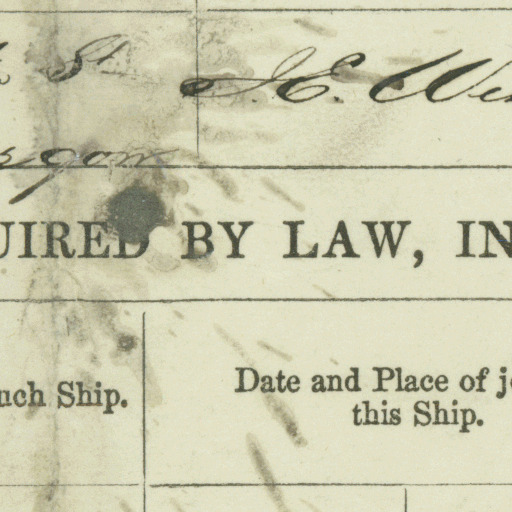 St J. E. Wi
UIRED BY LAW, IN
nch Ship.
Date and Place of j
this Ship.